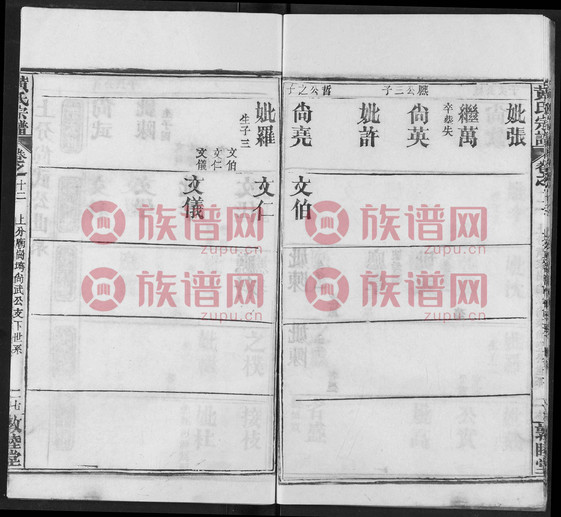 妣張
繼萬
幸葬失
尙英
燃公三子
妣許
尙堯
哲公之子
文伯
妣羅
生子三
文伯
文仁
文儀
文仁
文儀
黃氏宗譜
卷之十二
上分廟崗塆尙武公支下世系
敦睦堂
族谱网
zupu.cn
族谱网
zupu.cn
族谱网
zupu.cn
族谱网
zupu.cn